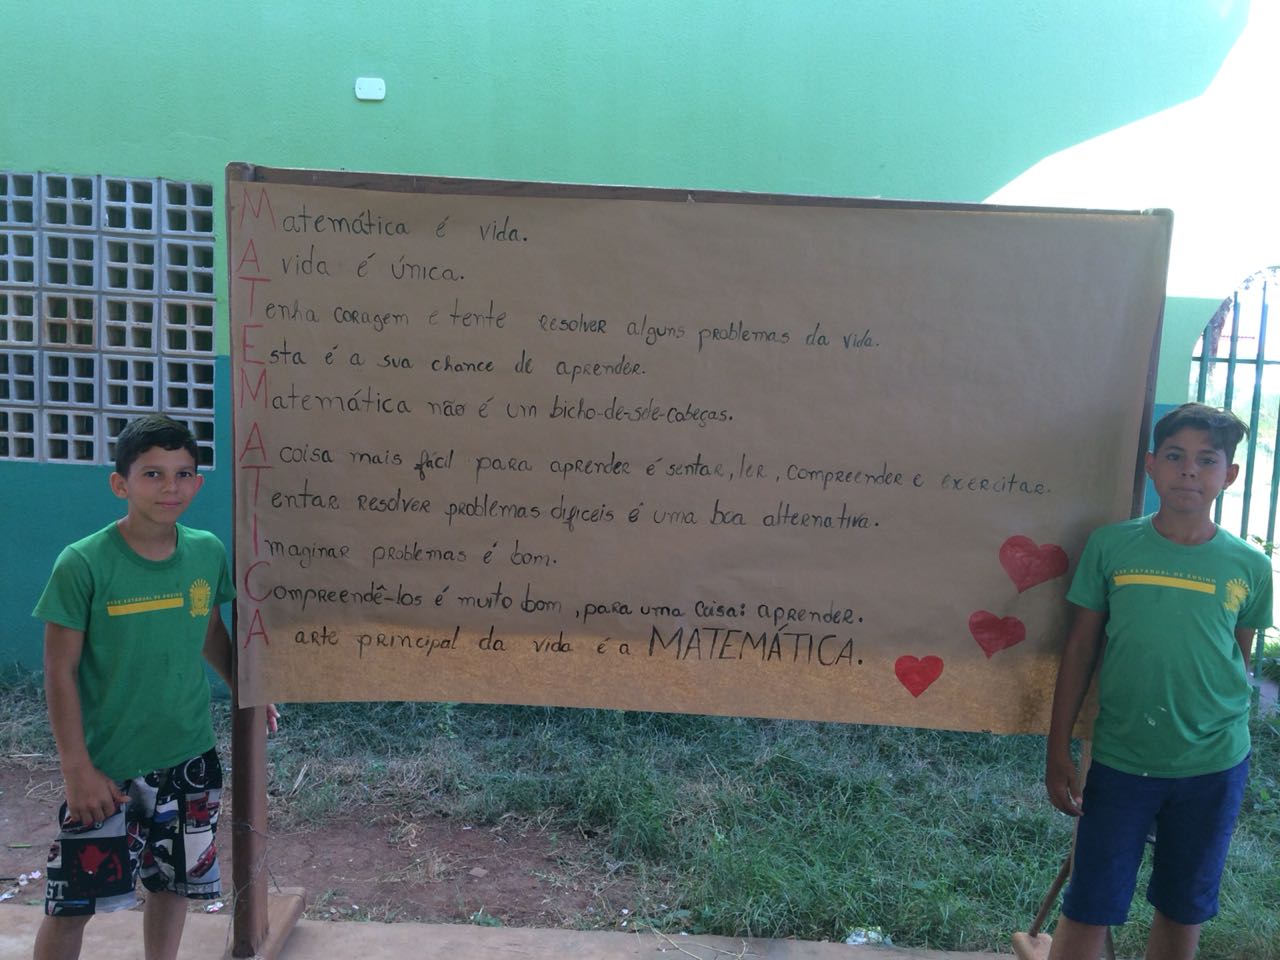 Matemática é vida.
A vida é única.
Tenha coragem e tente resolver alguns problemas da vida.
Esta é a sua chance de aprender.
Matemática não é um bicho-de-sete-cabeças.
A coisa mais fácil para aprender é sentar, ler, compreender e exercitar.
Tentar resolver problemas dificeis é uma boa alternativa.
Imaginar problemas é bom.
Compreendê-los é muito bom, para uma coisa: aprender.
A arte principal da vida é a MATEMÁTICA.
ESTADUAL DE ENSINO
REDE ESTADUAL DE ENSINO
ST